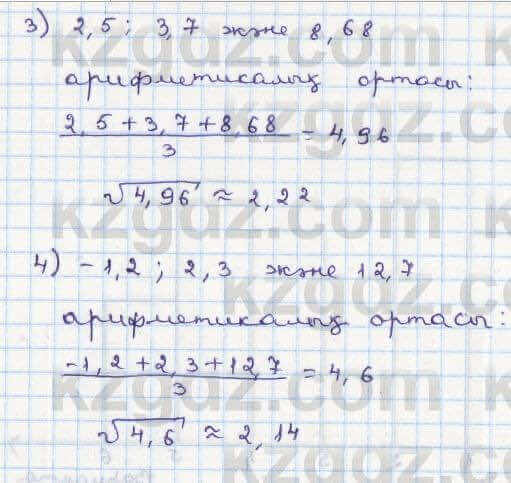 3) 2,5; 3,7 және 8,68
арифметикалық ортасы:
2,5+3,7+8,68 / 3 = 4,96
√4,96 ≈ 2,22
4) -1,2; 2,3 және 12,7
арифметикалық ортасы:
-1,2+2,3+12,7 / 3 = 4,6
√4,6 ≈ 2,14
kzgdz.com